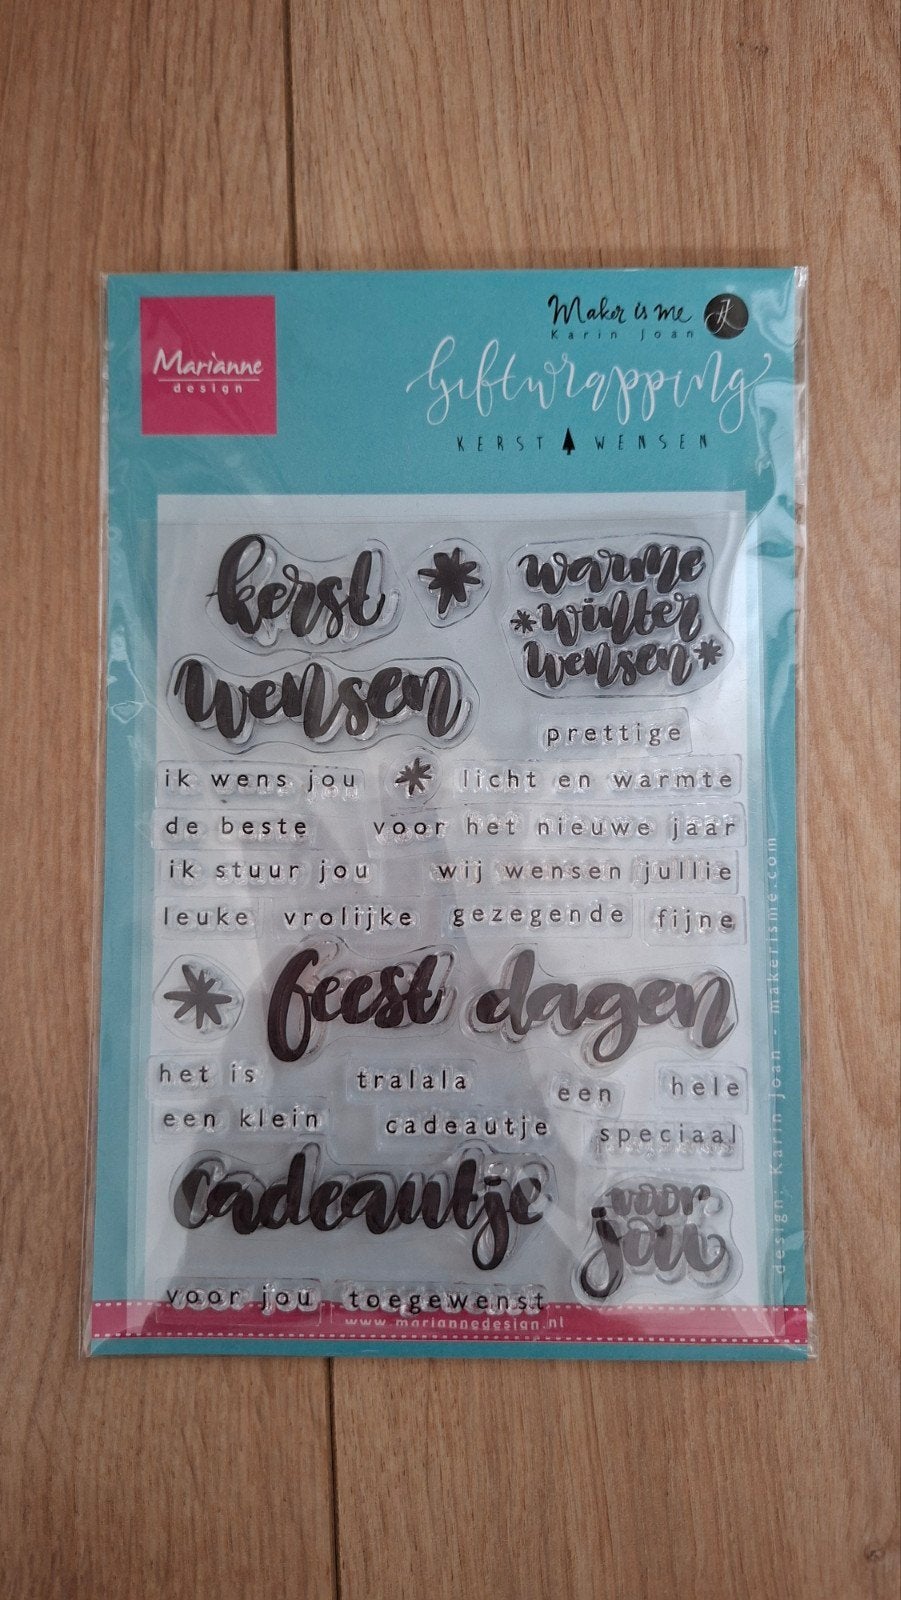 Marianne
design
Maker is me
Karin Joan
Giftwrapping
KERST WENSEN
kerst
wensen
warme
winter
wensen
prettige
ik wens jou
licht en warmte
de beste
voor het nieuwe jaar
ik stuur jou
wij wensen jullie
leuke
vrolijke
gezegende
fijne
feest dagen
het is
tralala
een
hele
een klein
cadeautje
speciaal
cadeautje
voor
jou
voor jou
toegewenst
www.mariannedesign.nl
design; Karin Joan - makerisme.com